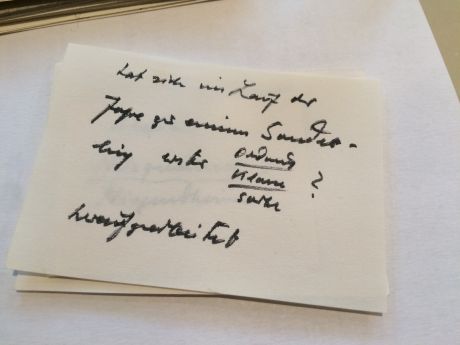 hat sich im Lauf der
Jahre zu einem Sonder-
ling erster Ordnung
Klasse ?
Sorte
heraufgearbeitet